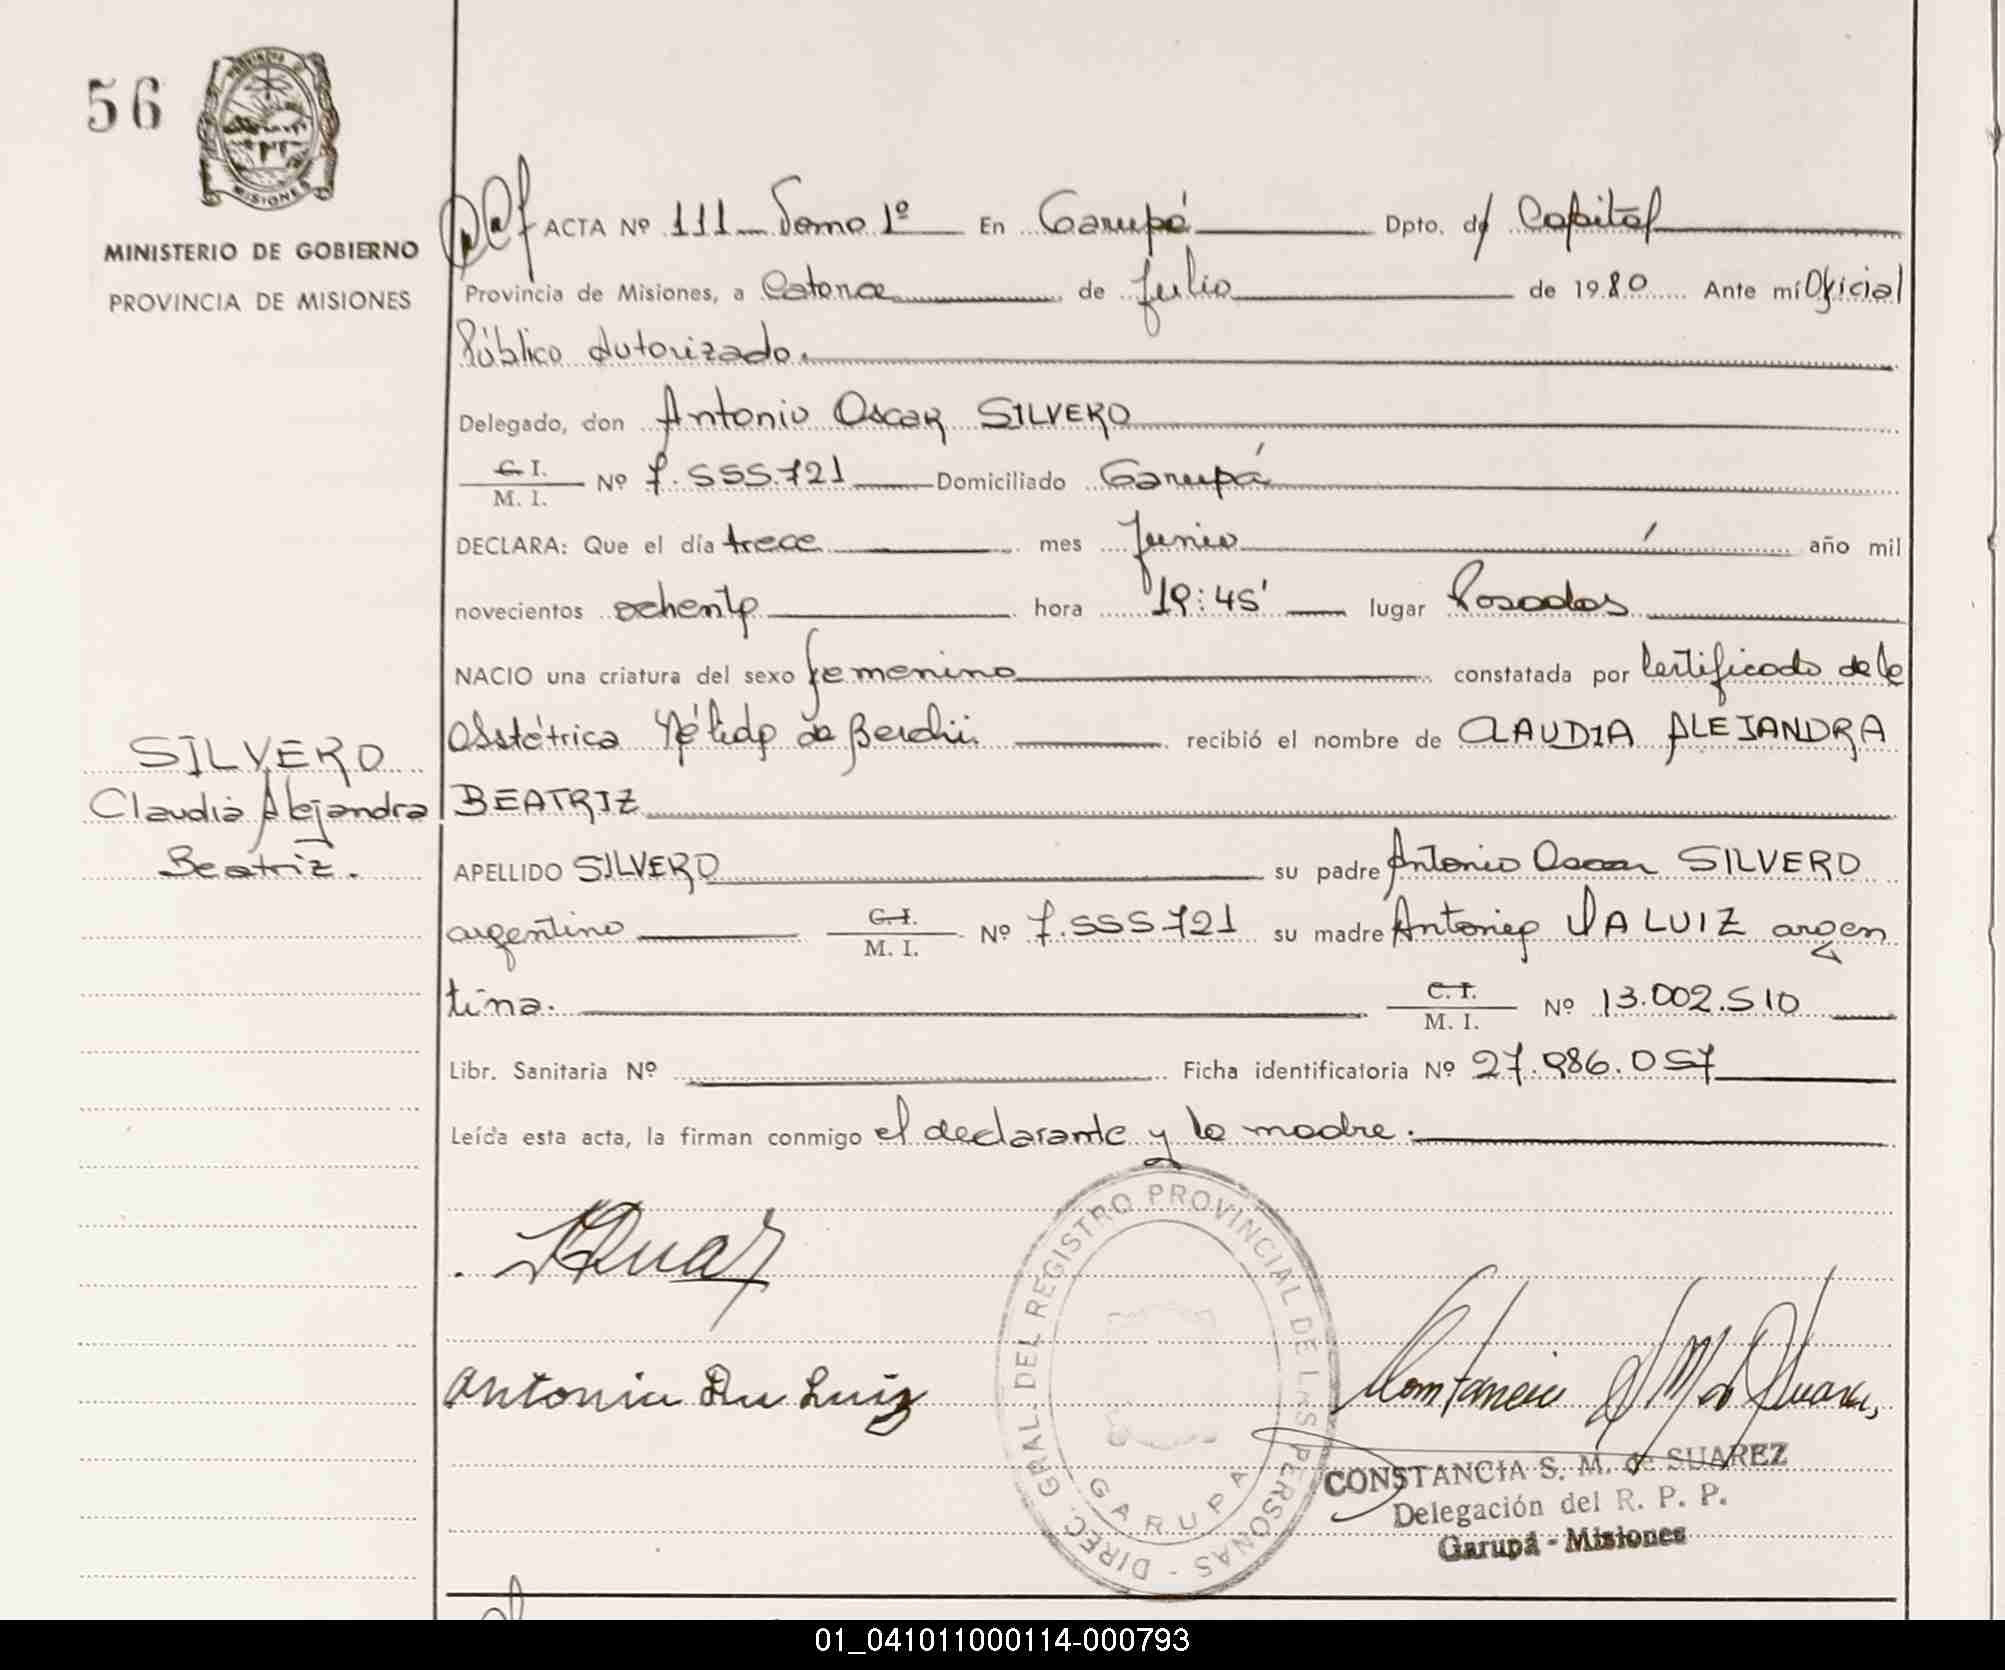 56
PROVINCIA DE
MISIONES
MINISTERIO DE GOBIERNO
PROVINCIA DE MISIONES
ACTA Nº 111 Tomo 1º En Garupá Dpto. de Capital
Provincia de Misiones, a Catorce de Julio de 1980 Ante mí Oficial
Público Autorizado.
Delegado, don Antonio Oscar SILVERO
C. I.
M. I. Nº 7.555.721 Domiciliado Garupá
DECLARA: Que el día trece mes Junio año mil
novecientos ochenta hora 19:45' lugar Posadas
NACIO una criatura del sexo femenino constatada por Certificado de la
Obstétrica Nélida de Berchii. recibió el nombre de CLAUDIA ALEJANDRA
BEATRIZ
SILVERO
Claudia Alejandra
Beatriz.
APELLIDO SILVERO su padre Antonio Oscar SILVERO
argentino C. I.
M. I. Nº 7.555.721 su madre Antonia DA LUIZ argen
tina. C. I.
M. I. Nº 13.002.510
Libr. Sanitaria Nº Ficha identificatoria Nº 27.986.057
Leída esta acta, la firman conmigo el declarante y la madre.
Antonia Da Luiz
DIREC. GRAL. DEL REGISTRO PROVINCIAL DE LAS PERSONAS -
GARUPA
CONSTANCIA S. M. de SUAREZ
Delegación del R. P. P.
Garupá - Misiones
01_041011000114-000793